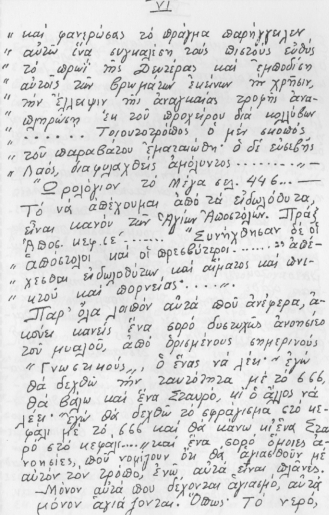 VI
" καὶ φανερώσας τὸ πρᾶγμα παρήγγειλεν
" αὐτῷ ἵνα συγκαλέσῃ τοὺς πιστοὺς εὐθὺς
" τὸ πρωῒ τῆς Δευτέρας καὶ ἐμποδίσῃ
" αὐτοῖς τῶν βρωμάτων ἐκείνων τὴν χρῆσιν,
" τὴν ἔλλειψιν τῆς ἀναγκαίας τροφῆς ἀνα-
" πληρώσῃ ἐκ τοῦ προχείρου διὰ κολλύβων
" ........ Τοιουτοτρόπως ὁ μὲν σκοπὸς
" τοῦ παραβάτου ἐματαιώθη· ὁ δὲ εὐσεβὴς
" Λαός, διαφυλαχθεὶς ἀμόλυντος .......... "
"Ὡρολόγιον τὸ Μέγα σελ. 446 ...
Τὸ νὰ ἀπέχουμαι ἀπὸ τὰ εἰδωλόθυτα,
εἶναι κανὼν τῶν Ἁγίων Ἀποστόλων. Πράξ
" Ἀποσ. κεφ. ιε΄ ...... " Συνήχθησαν δὲ οἱ
" ἀπόστολοι καὶ οἱ πρεσβύτεροι ...... ἀπέ-
" χεσθαι εἰδωλοθύτων, καὶ αἵματος καὶ πνι-
" κτοῦ καὶ πορνείας ...... "
Παρ' ὅλα λοιπὸν αὐτὰ ποὺ ἀνέφερα, ἀ-
κούει κανεὶς ἕνα σορὸ δυστυχῶς ἀνοησίες
τοῦ μυαλοῦ, ἀπὸ ὁρισμένους σημερινοὺς
" Γνωστικούς ", ὁ ἕνας νὰ λέει· " ἐγὼ
θὰ δεχθῶ τὴν ταυτότητα μὲ τὸ 666,
θὰ βάλω καὶ ἕνα Σταυρό, κι ὁ ἄλλος νὰ
λέει· " Ἐγὼ θὰ δεχθῶ τὸ σφράγισμα στὸ κε-
φάλι μὲ τὸ 666 καὶ θὰ κάνω κι ἕνα Σταυ
ρὸ στὸ κεφάλι...., " καὶ ἕνα σορὸ ὅμοιες ἀ-
νοησίες, ποὺ νομίζουν ὅτι θὰ ἁγιασθοῦν μὲ
αὐτὸν τὸν τρόπο, ἐνῷ αὐτὰ εἶναι πλάνες.
Μόνον αὐτὰ ποὺ δέχονται ἁγιασμό, αὐτὰ
μόνον ἁγιάζονται. Ὅπως: Τὸ νερό,